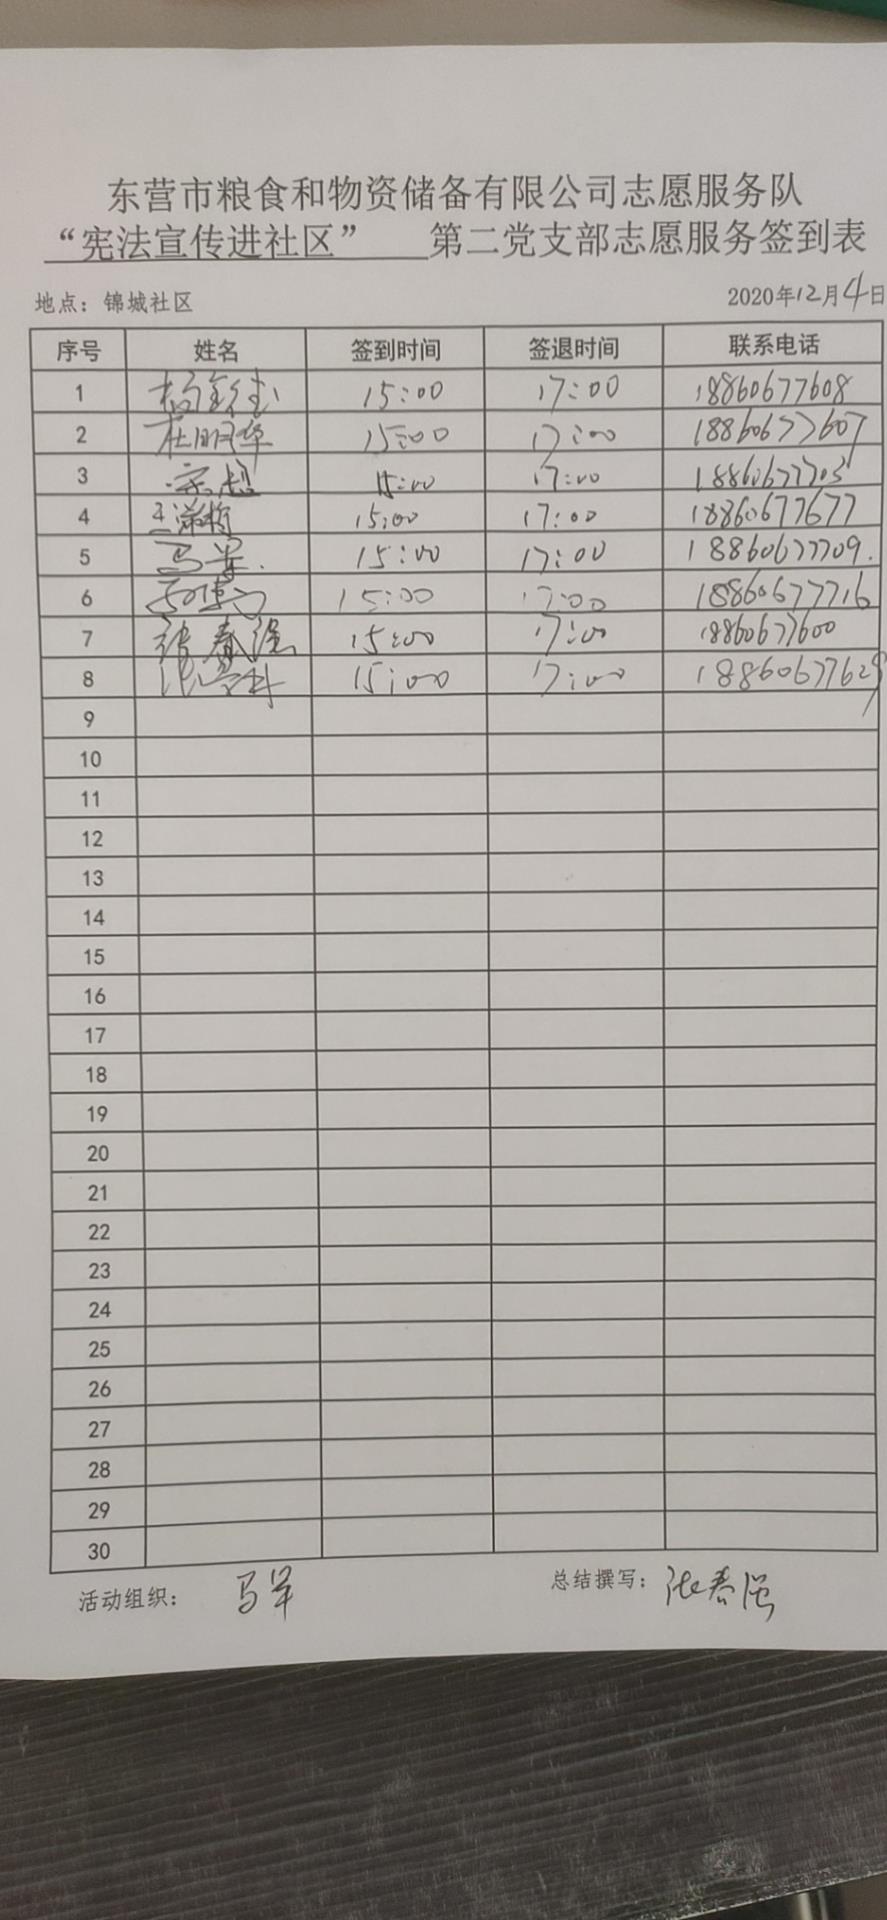 东营市粮食和物资储备有限公司志愿服务队
“宪法宣传进社区” 第二党支部志愿服务签到表
地点：锦城社区 2020年12月4日
序号 姓名 签到时间 签退时间 联系电话
1 15:00 17:00 18860677608
2 杜明华 15:00 17:00 18860677607
3 宋超 15:00 17:00 18860677703
4 15:00 17:00 18860677677
5 马军 15:00 17:00 18860677709
6 15:00 17:00 18860677716
7 张春强 15:00 17:00 18860677600
8 15:00 17:00
9
10
11
12
13
14
15
16
17
18
19
20
21
22
23
24
25
26
27
28
29
30
活动组织： 马军 总结撰写： 张春强